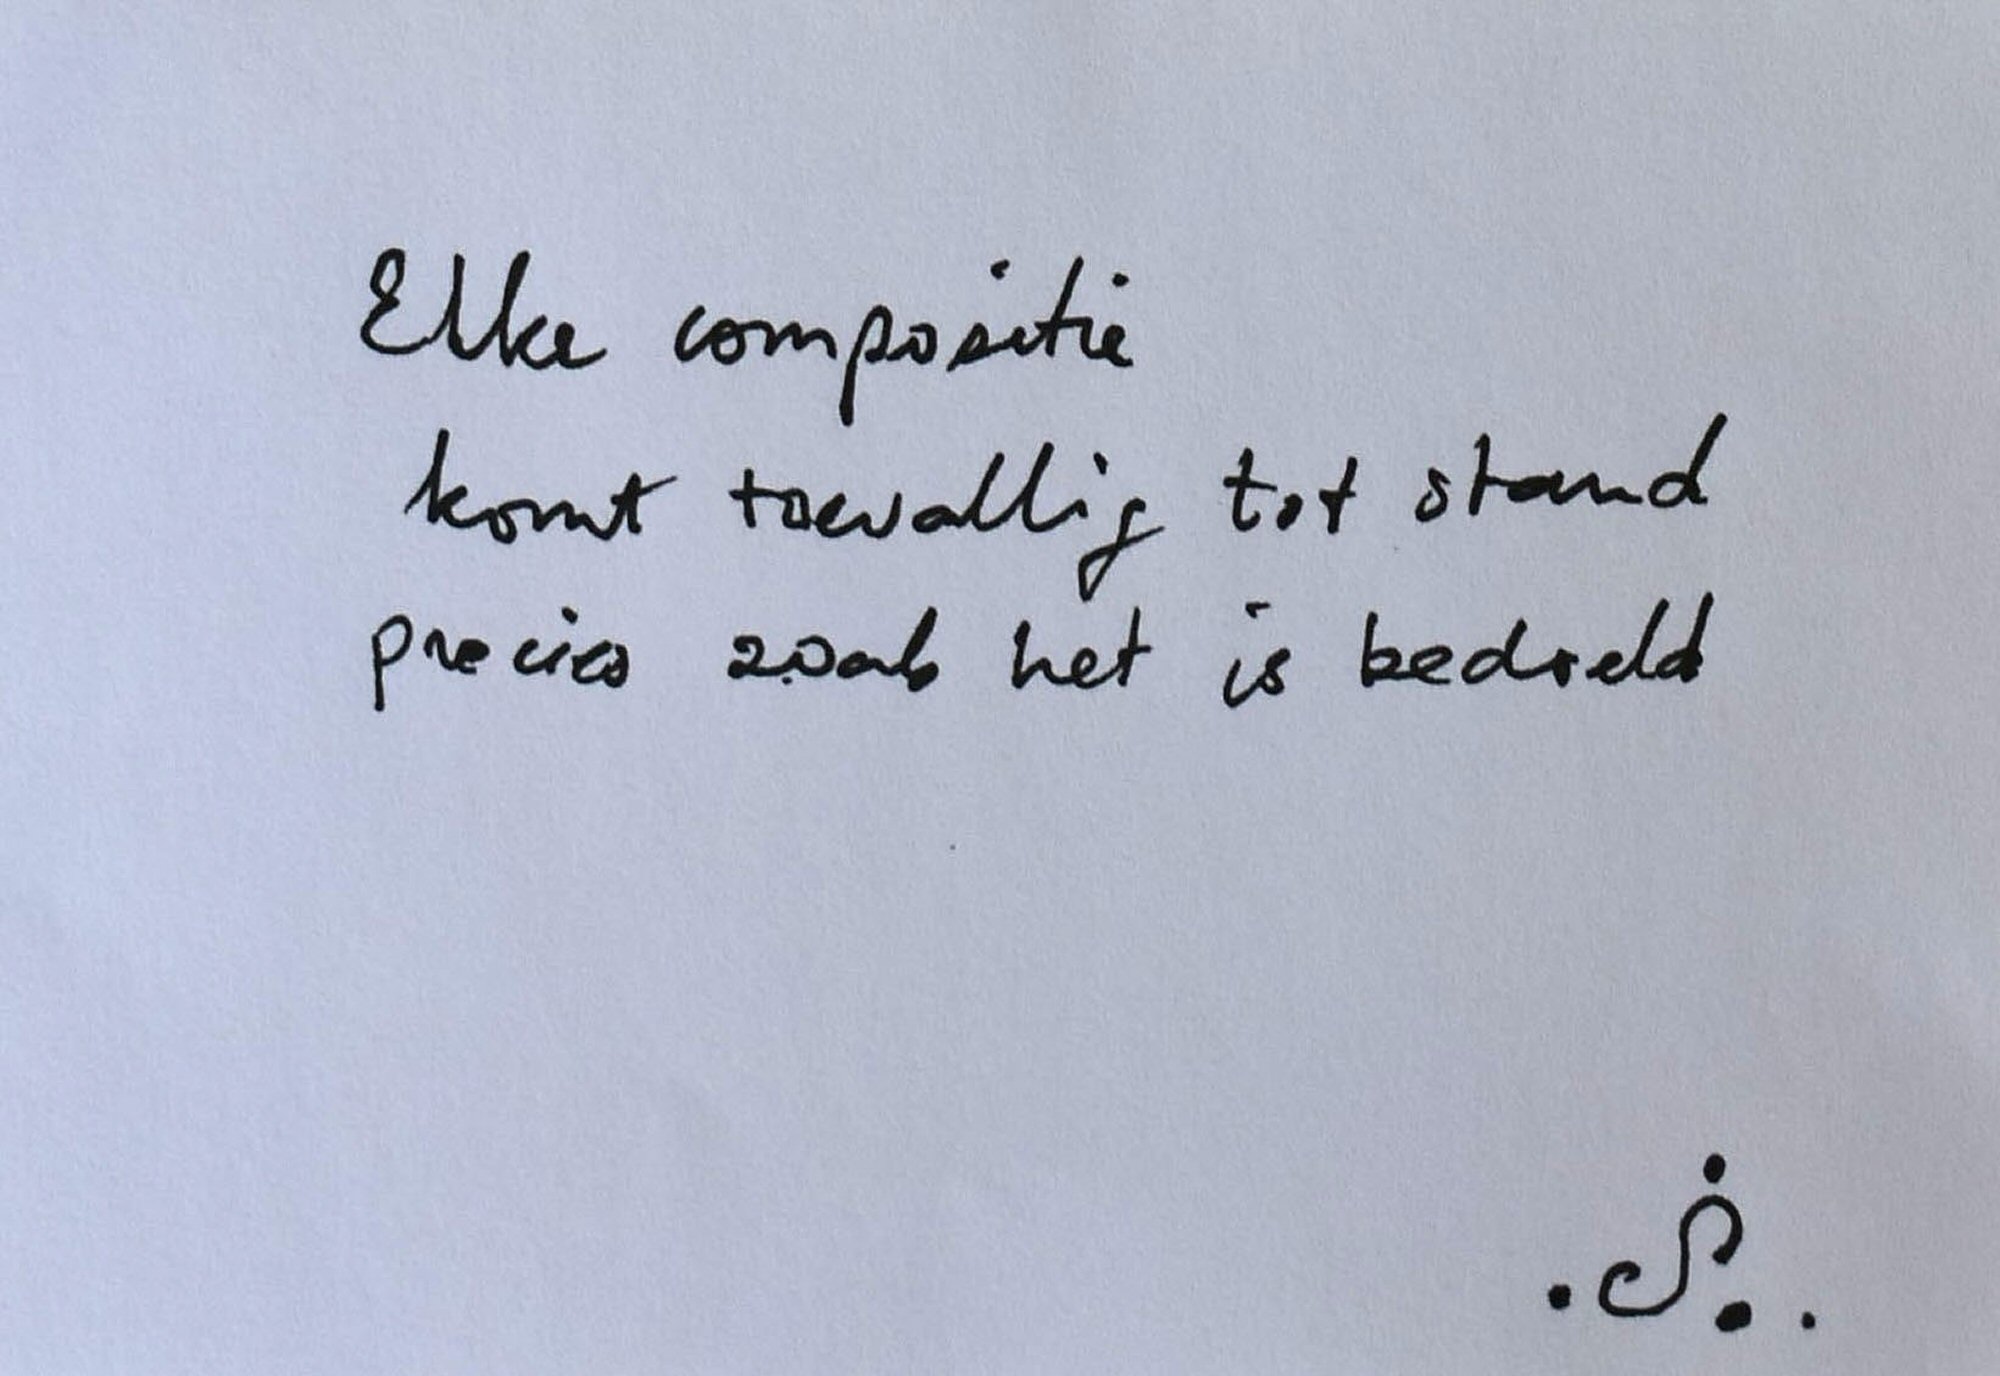 Elke compositie
komt toevallig tot stand
precies zoals het is bedoeld